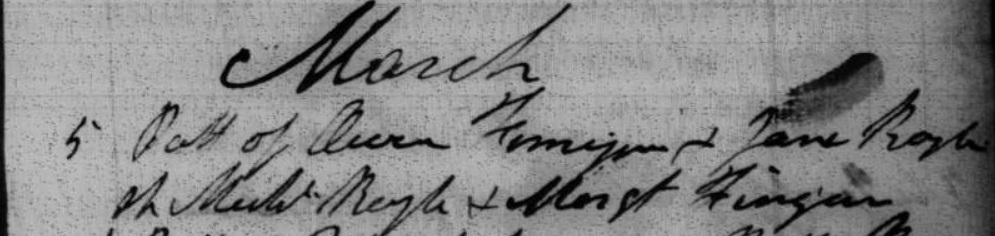 March
5 Patt of Owen Finnigan & Jane Boyle
sp Michl Boyle & Margt Finigan